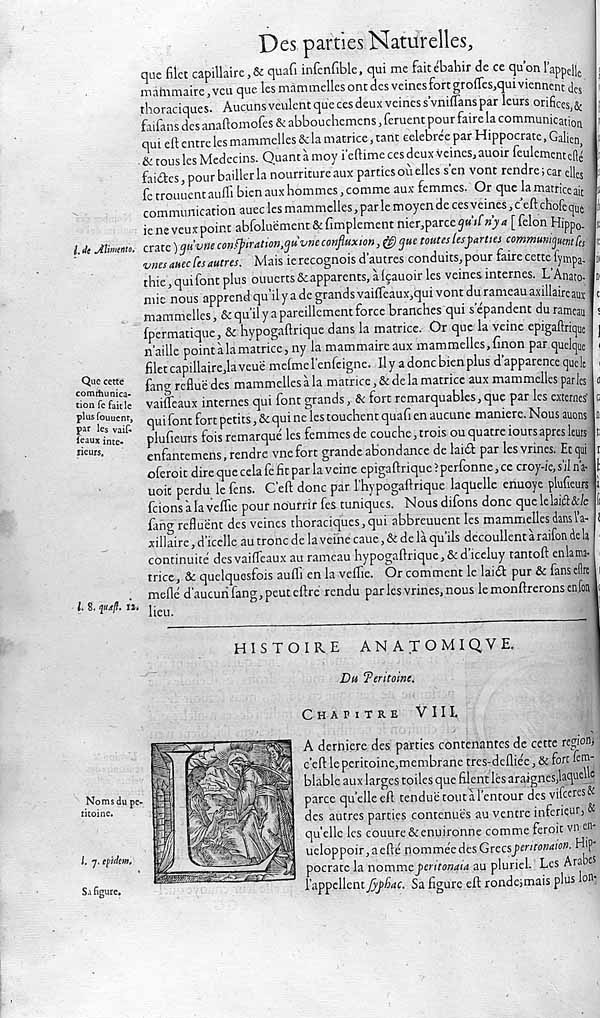 Des parties Naturelles,
que filet capillaire, & quasi insensible, qui me fait ébahir de ce qu'on l'appelle
mammaire, veu que les mammelles ont des veines fort grosses, qui viennent des
thoraciques. Aucuns veulent que ces deux veines s'vnissans par leurs orifices, &
faisans des anastomoses & abbouchemens, seruent pour faire la communication
qui est entre les mammelles & la matrice, tant celebrée par Hippocrate, Galien,
& tous les Medecins. Quant à moy i'estime ces deux veines, auoir seulement esté
faictes, pour bailler la nourriture aux parties où elles s'en vont rendre; car elles
se trouuent aussi bien aux hommes, comme aux femmes. Or que la matrice ait
communication auec les mammelles, par le moyen de ces veines, c'est chose que
ie ne veux point absoluëment & simplement nier, parce qu'il n'y a [ selon Hippo-
l. de Alimento.
crate ) qu'vne conspiration, qu'vne confluxion, & que toutes les parties communiquent les
vnes auec ses autres. Mais ie recognois d'autres conduits, pour faire cette sympa-
thie, qui sont plus ouuerts & apparents, à sçauoir les veines internes. L'Anato-
mie nous apprend qu'il y a de grands vaisseaux, qui vont du rameau axillaire aux
mammelles, & qu'il y a pareillement force branches qui s'épandent du rameau
spermatique, & hypogastrique dans la matrice. Or que la veine epigastrique
n'aille point à la matrice, ny la mammaire aux mammelles, sinon par quelque
filet capillaire, la veuë mesme l'enseigne. Il y a donc bien plus d'apparence que le
Que cette
communica-
tion se fait le
plus souuent,
par les vais-
seaux inte-
rieurs.
sang refluë des mammelles à la matrice, & de la matrice aux mammelles par les
vaisseaux internes qui sont grands, & fort remarquables, que par les externes
qui sont fort petits, & qui ne les touchent quasi en aucune maniere. Nous auons
plusieurs fois remarqué les femmes de couche, trois ou quatre iours apres leurs
enfantemens, rendre vne fort grande abondance de laict par les vrines. Et qui
oseroit dire que cela se fit par la veine epigastrique? personne, ce croy-ie, s'il n'a-
uoit perdu le sens. C'est donc par l'hypogastrique laquelle enuoye plusieurs
scions à la vessie pour nourrir ses tuniques. Nous disons donc que le laict & le
sang refluënt des veines thoraciques, qui abbreuuent les mammelles dans l'a-
xillaire, d'icelle au tronc de la veine caue, & de là qu'ils découllent à raison de la
continuité des vaisseaux au rameau hypogastrique, & d'iceluy tantost en la ma-
trice, & quelquesfois aussi en la vessie. Or comment le laict pur & sans estre
meslé d'aucun sang, peut estre rendu par les vrines, nous le monstrerons en son
l. 8. quæst. 12.
lieu.
HISTOIRE ANATOMIQVE.
Du Peritoine.
CHAPITRE VIII.
LA derniere des parties contenantes de cette region,
c'est le peritoine, membrane tres-desliée, & fort sem-
blable aux larges toiles que filent les araignes, laquelle
Noms du pe-
ritoine.
parce qu'elle est tenduë tout à l'entour des visceres &
des autres parties contenuës au ventre inferieur, &
qu'elle les couure & enuironne comme feroit vn en-
ueloppoir, a esté nommée des Grecs peritonaion. Hip-
l. 7. epidem.
pocrate la nomme peritonaia au pluriel. Les Arabes
Sa figure.
l'appellent syphac. Sa figure est ronde; mais plus lon-